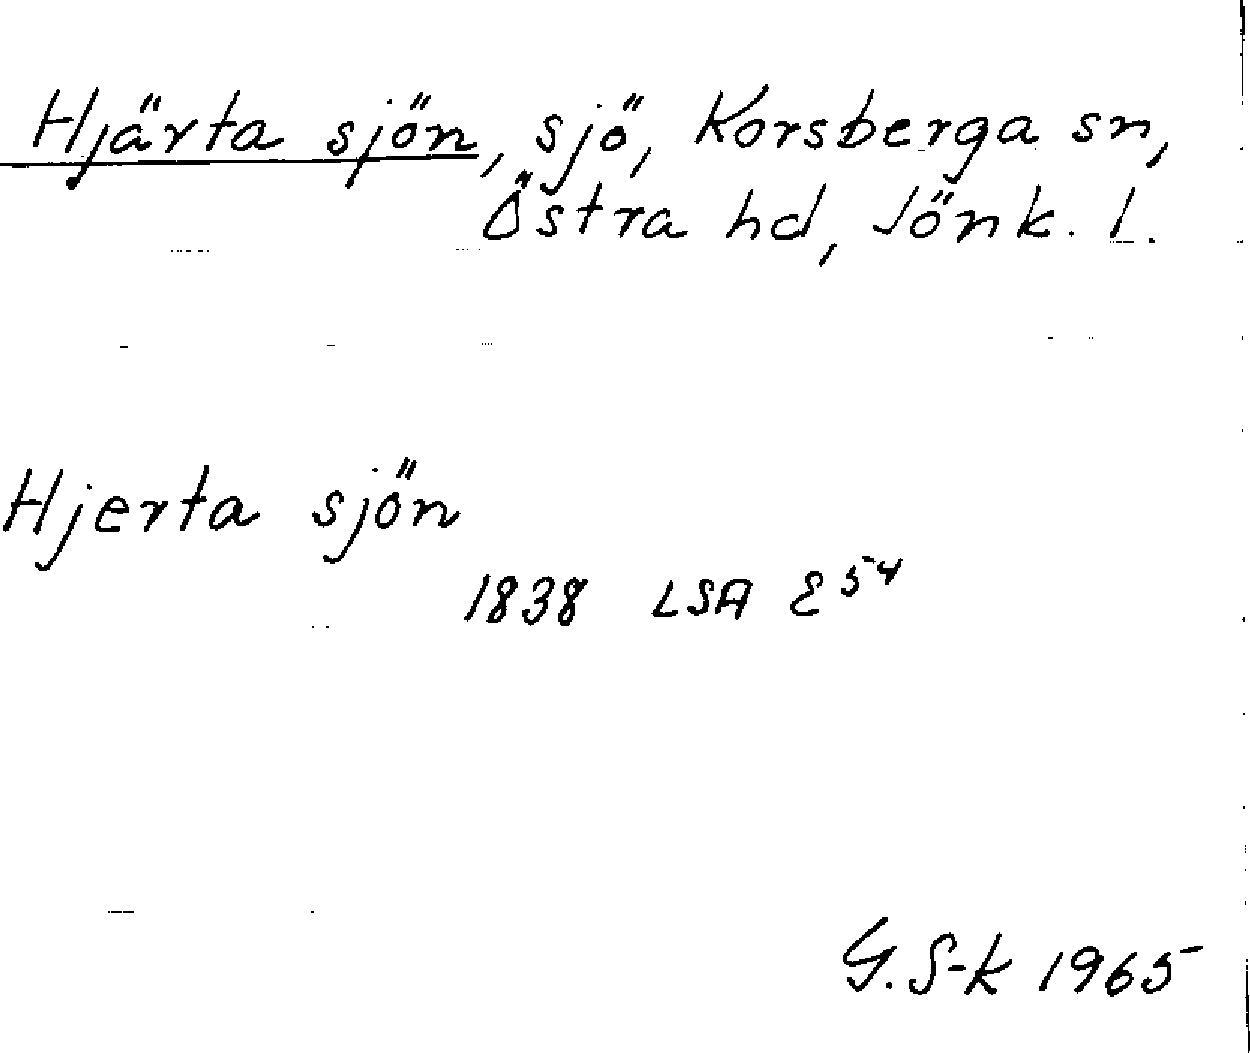 Hjärta sjön, sjö, Korsberga sn,
Östra hd, Jönk. l.
Hjerta sjön
1838 LSA E54
G. S-k 1965